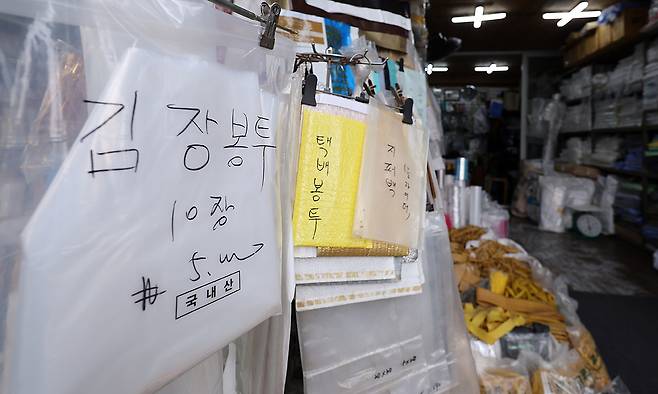 김장봉투
10장
5.000
# 국내산
택배봉투
지퍼백